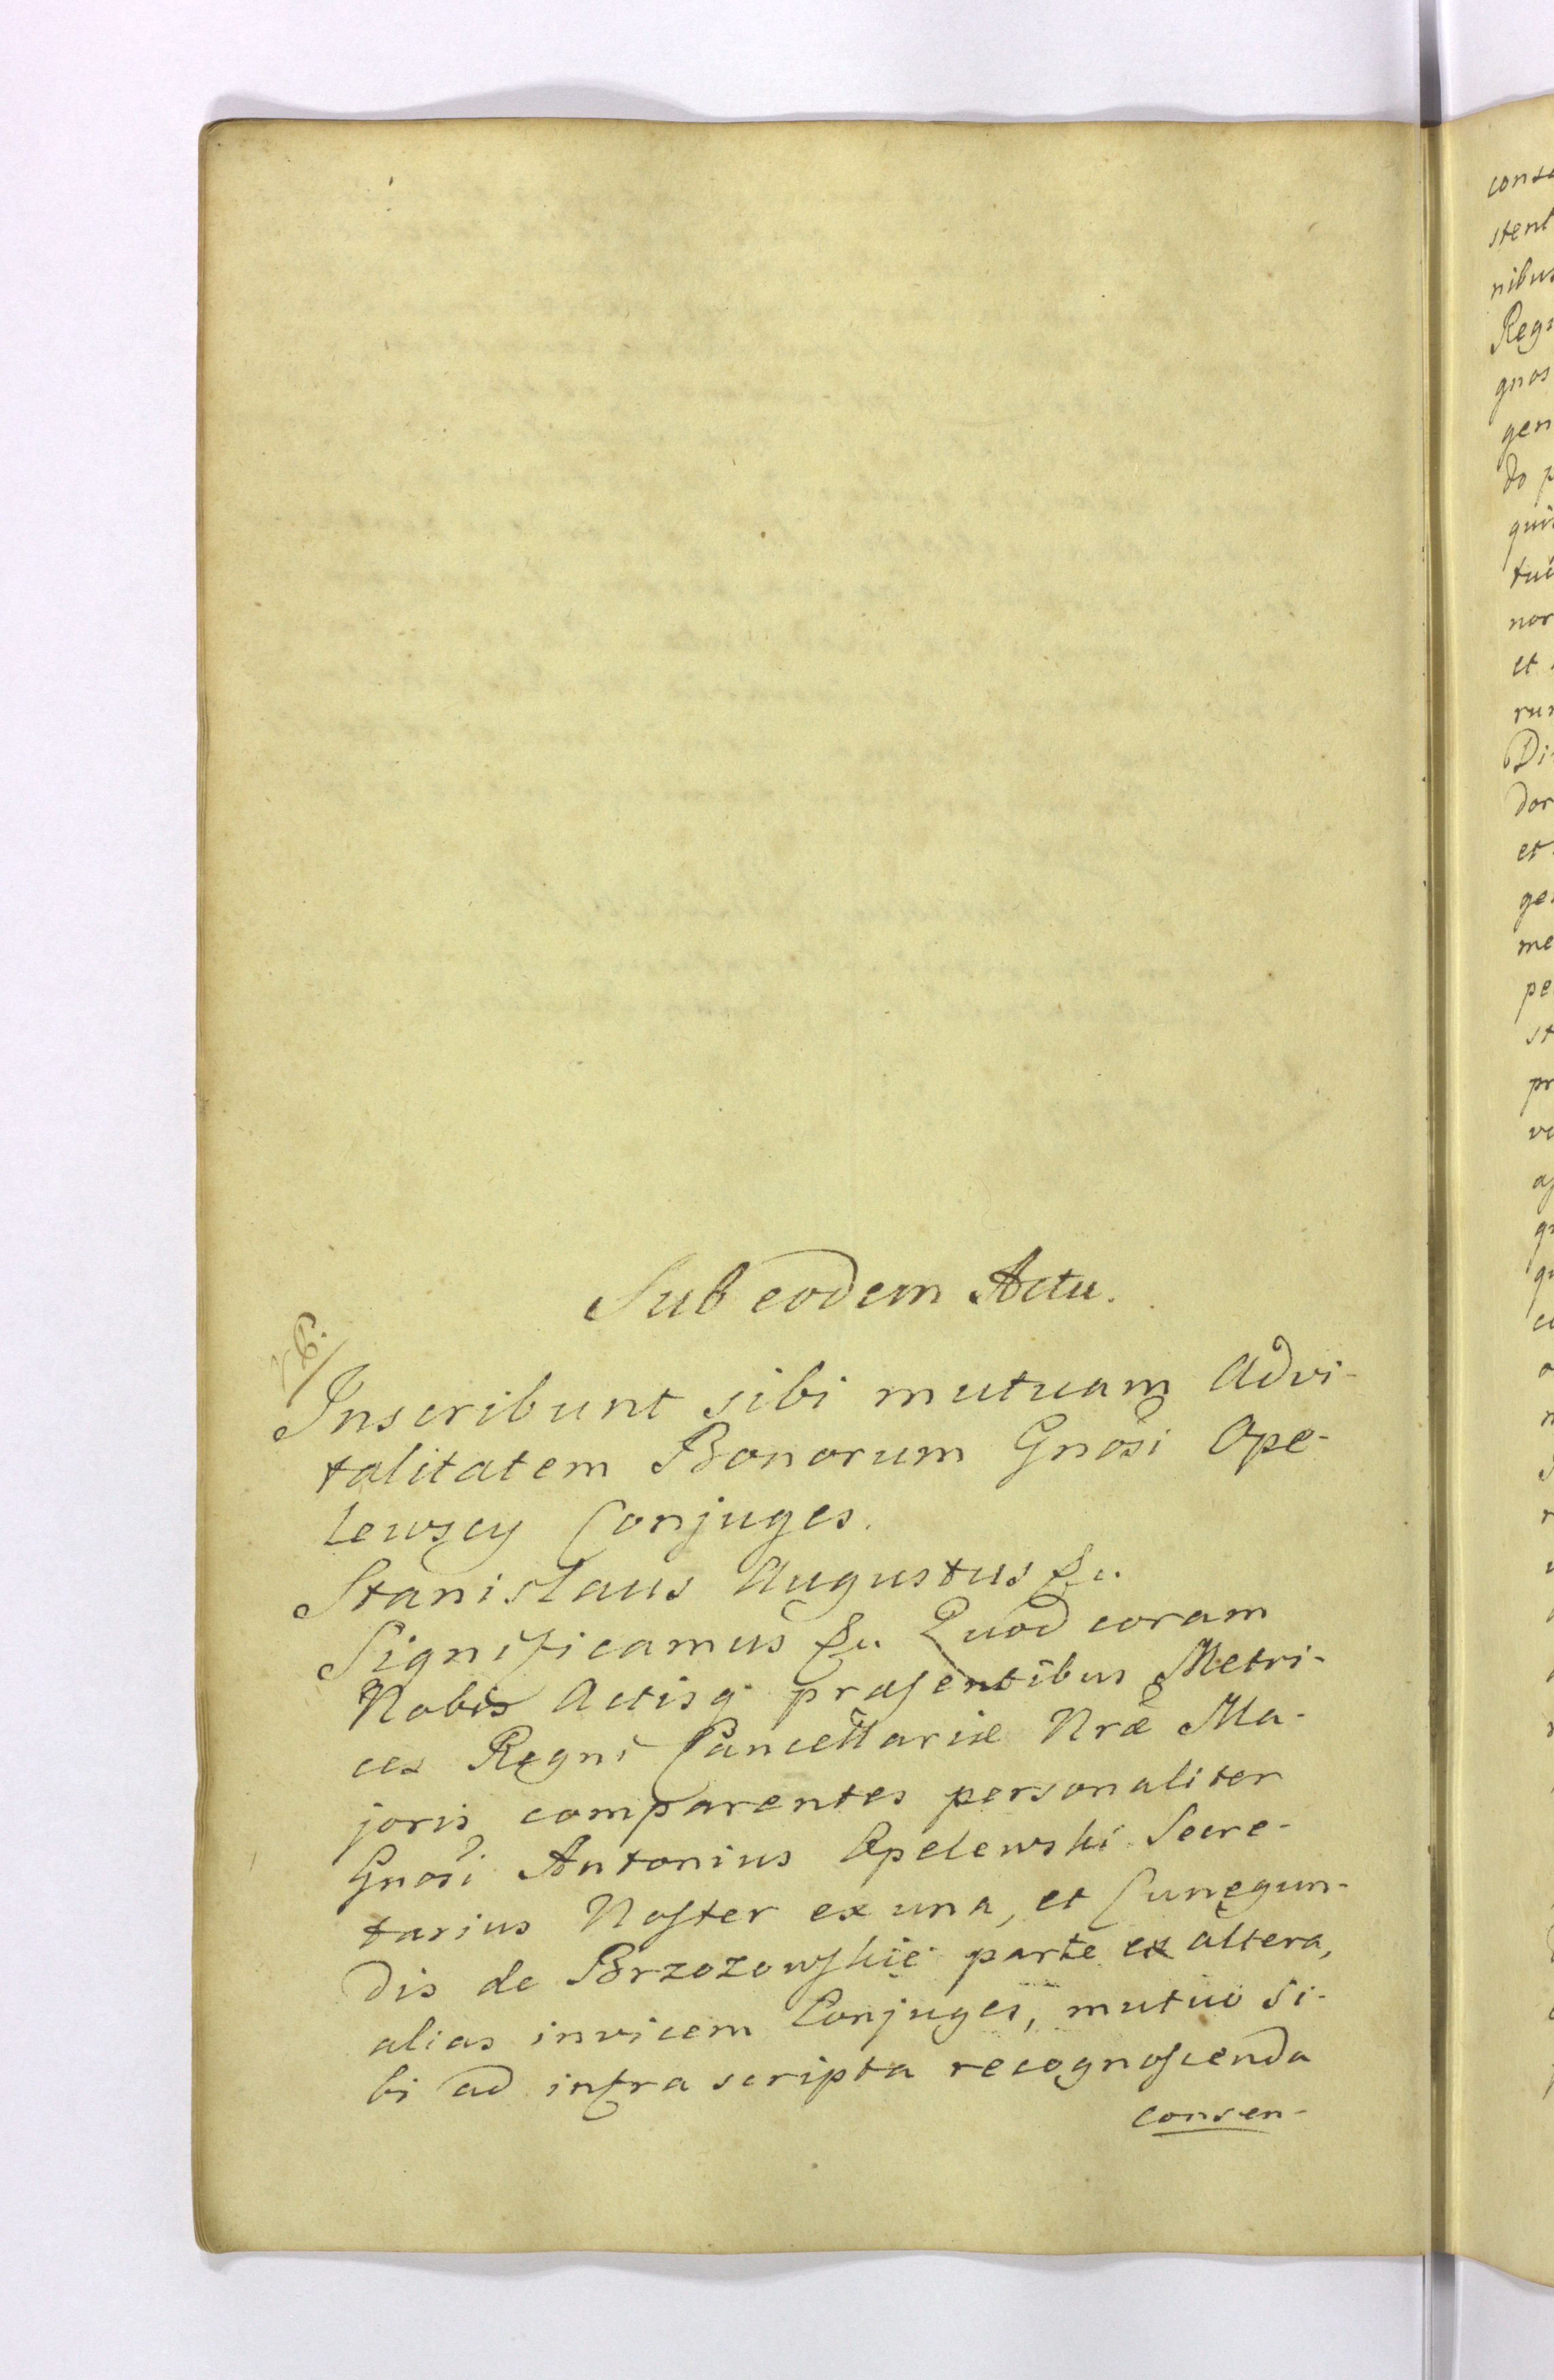 Sub eodem Actu.
Inscribunt sibi mutuam Advi-
talitatem Bonorum Gnosi Ope-
lewscy Conjuges.
Stanislaus Augustus &c.
Significamus &c. Quod coram
Nobis Actisq præsentibus Metri-
ces Regni Cancellariæ Nræ Ma-
joris comparentes personaliter
Gnosi Antonius Opelewski Secre-
tarius Noster ex una, et Cunegun-
dis de Brzozowskie parte ex altera,
alias invicem Conjuges, mutuo si-
bi ad infra scripta recognoscenda
consen-
conse
stent
nibus
Reg
gnos
gen
do p
qui
tu
nor
et
rum
Di
dor
et
ge
me
pe
st
pr